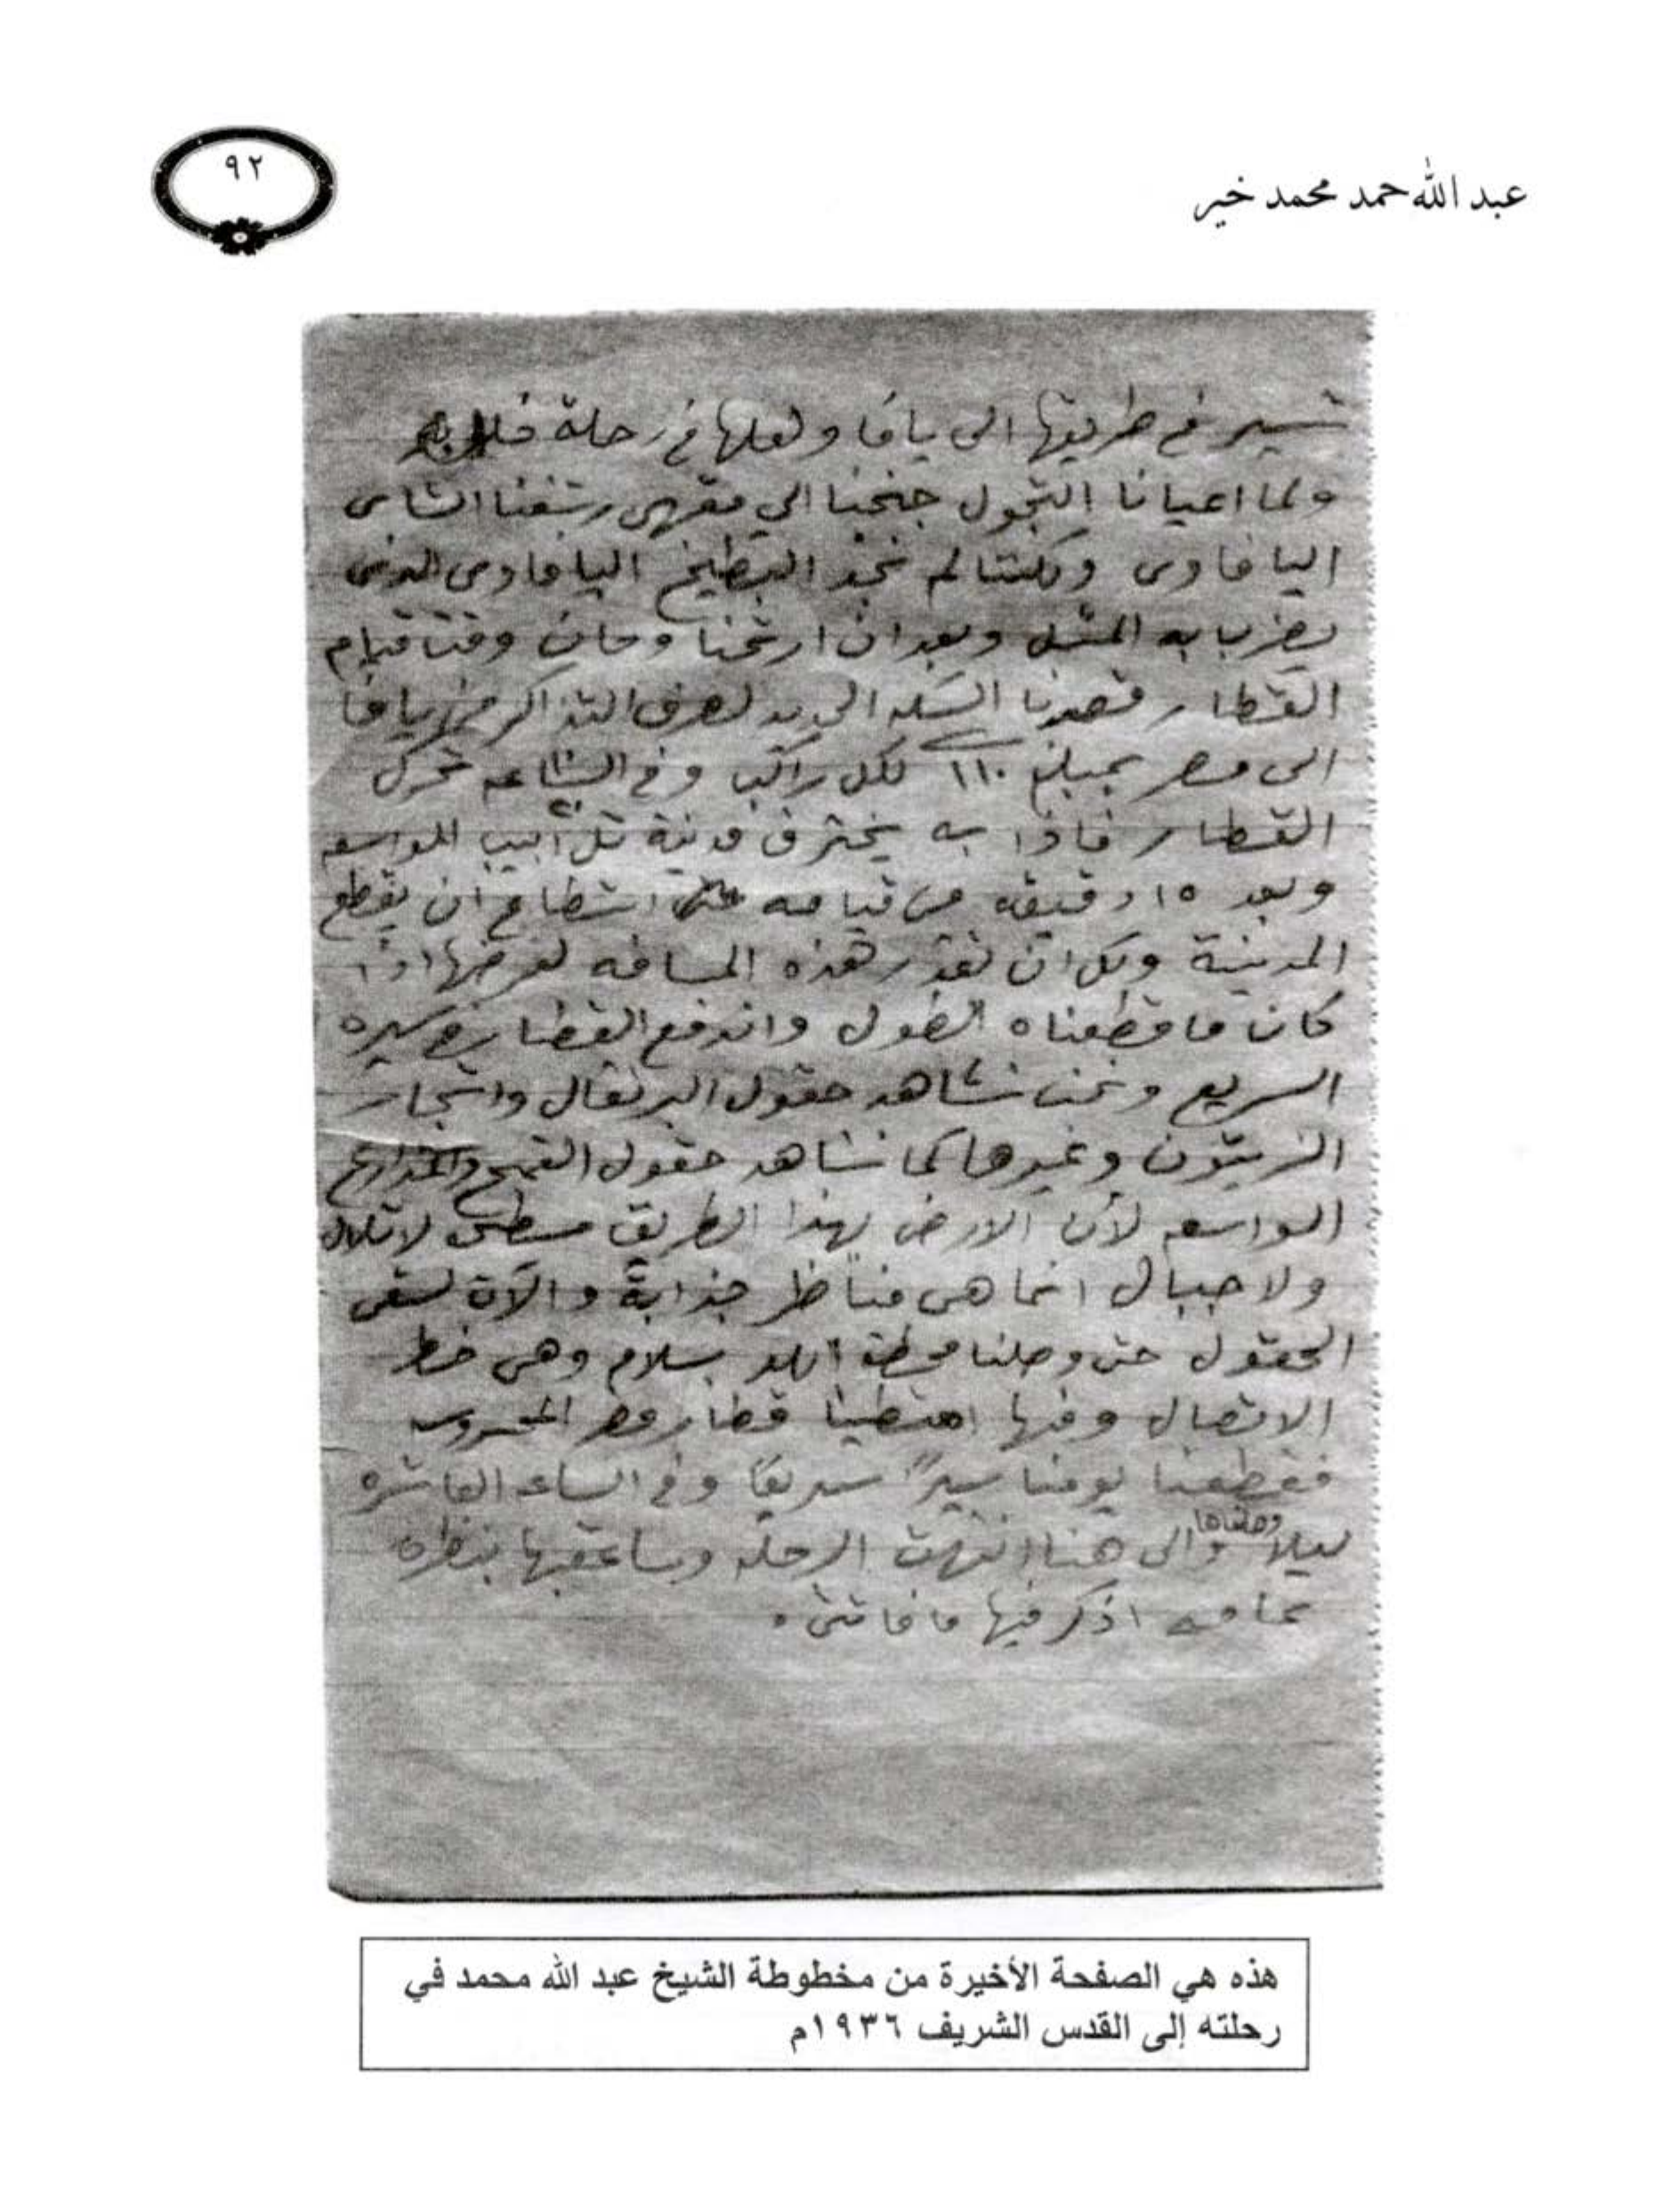 ٩٢
عبد الله حمد محمد خير
تسير في طريقها الى يافا ولعلها في رحلة
ولما اعيانا التجول جنحنا الي مقهى رشفنا الشاى
اليافاوى ولكننا لم نجد البطيخ اليافاوى الذى
يضرب به المثل وبعد ان ارتحنا وحان وقت قيام
القطار قصدنا السكه الحديد لصرف التذاكر من يافا
الى مصر بمبلغ ١١٠ لكل راكب وفي الساعه تحرك
القطار فاذا به يخترق مدينة تل أبيب الواسعه
وبعد ١٥ دقيقه من قيامه استطاع ان يقطع
المدينة ولك ان تقدر هذه المسافه لعرضها اذا
كان ما قطعناه الطول واندفع القطار في سيره
السريع ونحن نشاهد حقول البرتقال واشجار
الزيتون وغيرها كما نشاهد حقول القمح والمزارع
الواسعه لأن الارض بهذا الطريق مسطحه لا تلال
ولا جبال انما هى مناظر جذابة والآت لسقى
الحقول حتى وصلنا محطة اللد بسلام وهى خط
الاتصال وفيها امتطينا قطار مصر المحروسه
فقطعنا يومنا سيراً سريعًا وفي الساعه العاشره
ليلا وصلناها والى هنا انتهت الرحله وساعقبها بنظره
عامه اذكر فيها ما فاتنى .
هذه هي الصفحة الأخيرة من مخطوطة الشيخ عبد الله محمد في
رحلته إلى القدس الشريف ١٩٣٦م